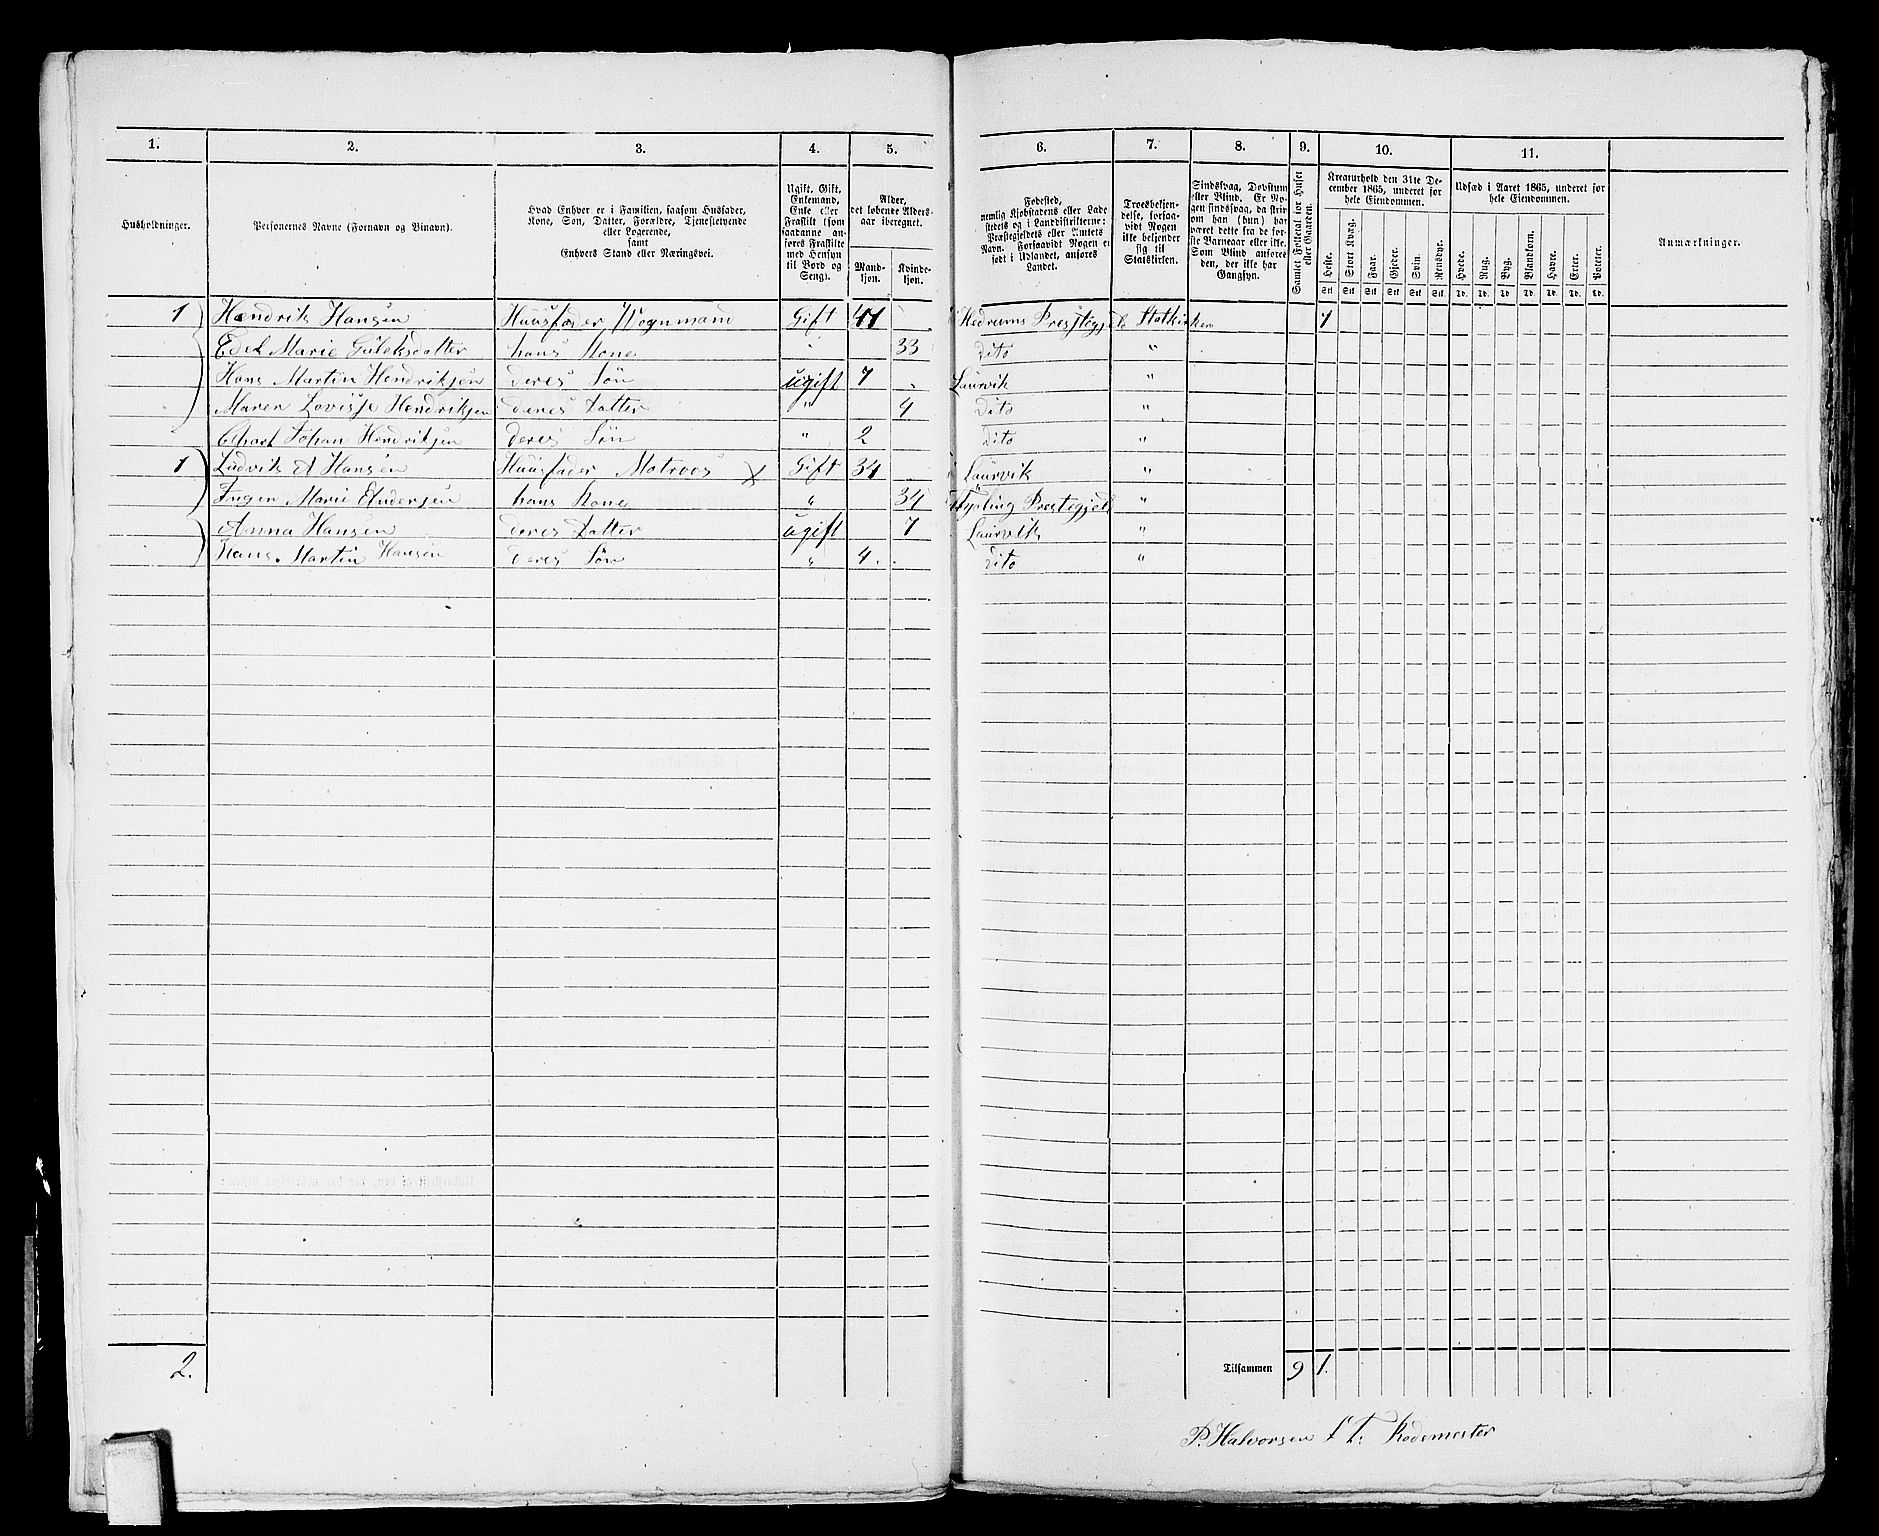 1. 2. 3. 4. 5. 6. 7. 8. 9. 10. 11.
Husholdninger.
Personernes Navne (Fornavn og Binavn).
Hvad Enhver er i Familien, saasom Husfader,
Kone, Søn, Datter, Forældre, Tjenestetyende
eller Logerende,
samt
Enhvers Stand eller Næringsvei.
Ugift, Gift,
Enkemand,
Enke eller
Fraskilt (som
saadanne an-
føres Fraskilte
med Hensyn
til Bord og
Seng).
Alder,
det løbende Alders-
aar iberegnet.
Mand-
kjøn.
Kvinde-
kjøn.
Fødested,
nemlig Kjøbstadens eller Lade-
stedets og i Landdistrikterne:
Præstegjeldets eller Amtets
Navn. Forsaavidt Nogen er
født i Udlandet, anføres
Landet.
Troesbekjen-
delse, forsaa-
vidt Nogen
ikke bekjender
sig til
Statskirken.
Sindssvag, Døvstum
eller Blind. Er No-
gen sindssvag, da skriv
om han (hun) har
været dette fra de før-
ste Barneaar eller ikke.
Som Blind anføres
den, der ikke har
Gangsyn.
Samlet Folketal for Huset
eller Gaarden.
Kreaturhold den 31te De-
cember 1865, underet for
hele Eiendommen.
Heste. Stort Kvæg. Faar. Gjeder. Svin. Rensdyr.
Stk. Stk. Stk. Stk. Stk. Stk.
Udsæd i Aaret 1865, underet for
hele Eiendommen.
Hvede. Rug. Byg. Blandkorn. Havre. Erter. Poteter.
Td. Td. Td. Td. Td. Td. Td.
Anmærkninger.
1 Hendrik Hansen Huusfader Vognmand Gift 41 Hedrums Prestegjeld Statkirken 1
Marie Guleksdatter hans Kone " 33 Dito "
Hans Martin Hendriksen deres Søn ugift 7 Laurvik "
Maren Lovisje Hendriksen deres Datter " 4 Dito "
Johan Hendriksen deres Søn " 2 Dito "
1 Ludvik A Hansen Huusfader Matroos X Gift 34 Laurvik "
Ingen Marie Andersen hans Kone " 34 Prestegjeld "
Anna Hansen deres Datter ugift 7 Laurvik "
Hans Martin Hansen deres Søn " 4 Dito "
2. Tilsammen 9 1.
P. Halvorsen f. T. Rodemester